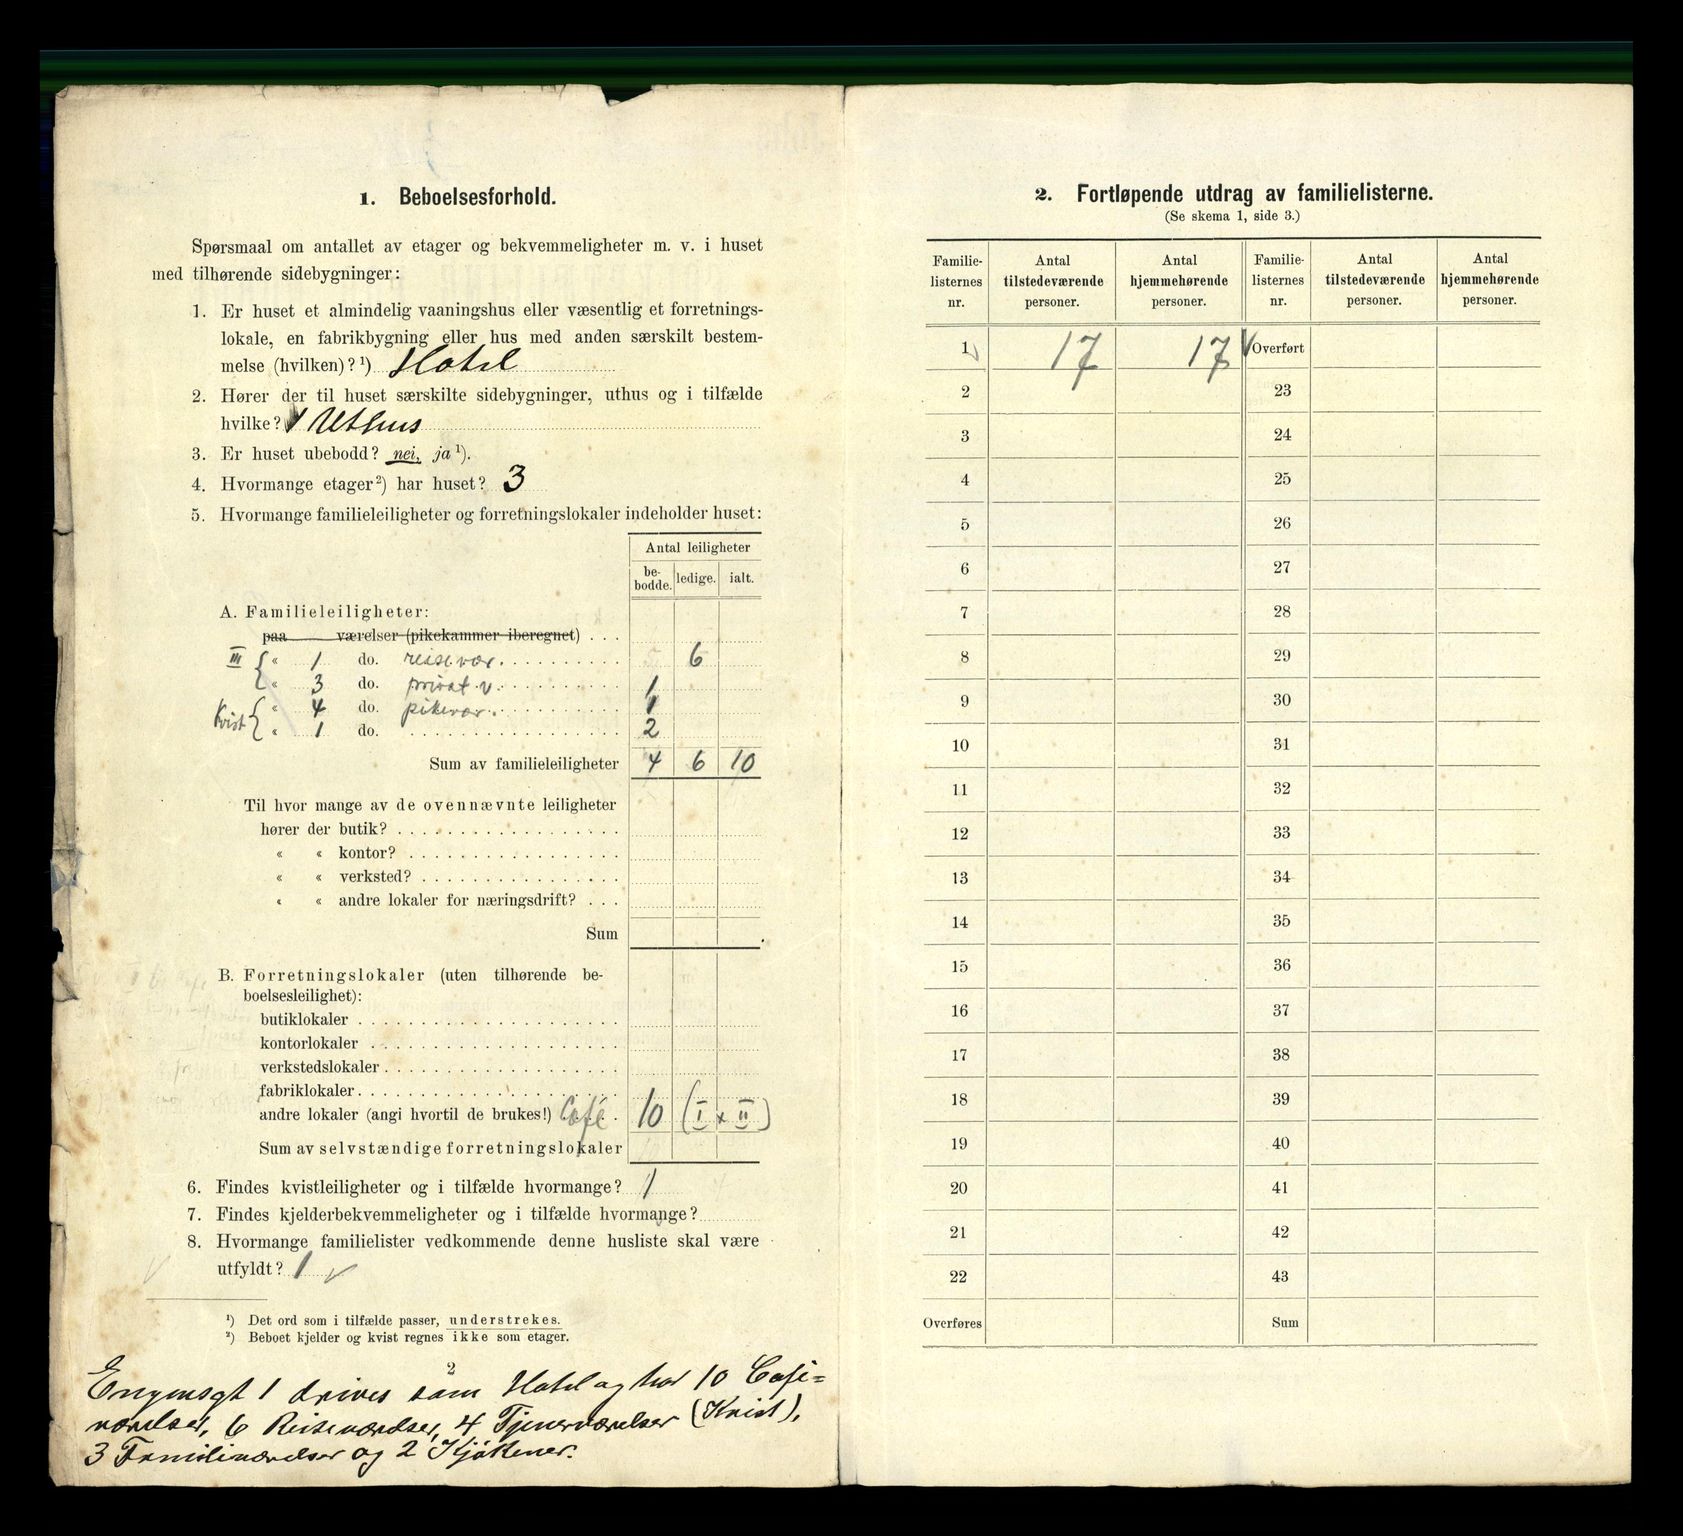 1. Beboelsesforhold.
Spørsmaal om antallet av etager og bekvemmeligheter m. v. i huset
med tilhørende sidebygninger:
1. Er huset et almindelig vaaningshus eller væsentlig et forretnings-
lokale, en fabrikbygning eller hus med anden særskilt bestem-
melse (hvilken)? ¹) Hotel
2. Hører der til huset særskilte sidebygninger, uthus og i tilfælde
hvilke? 1 Uthus
3. Er huset ubebodd? nei, ja ¹).
4. Hvormange etager ²) har huset? 3
5. Hvormange familieleiligheter og forretningslokaler indeholder huset:
Antal leiligheter
be-bodde. ledige. ialt.
A. Familieleiligheter:
paa værelser (pikekammer iberegnet) . . .
III { « 1 do. reisevær. 6
{ « 3 do. privat v. 1
Kvist { « 4 do. pikevær. 1
{ « 1 do. 2
Sum av familieleiligheter 4 6 10
Til hvor mange av de ovennævnte leiligheter
hører der butik?
« « kontor?
« « verksted?
« « andre lokaler for næringsdrift? . . .
Sum
B. Forretningslokaler (uten tilhørende be-
boelsesleilighet):
butiklokaler
kontorlokaler
verkstedslokaler
fabriklokaler
andre lokaler (angi hvortil de brukes!) Café 10 (I + II)
Sum av selvstændige forretningslokaler
6. Findes kvistleiligheter og i tilfælde hvormange? 1
7. Findes kjelderbekvemmeligheter og i tilfælde hvormange?
8. Hvormange familielister vedkommende denne husliste skal være
utfyldt? 1 ✓
¹) Det ord som i tilfælde passer, understrekes.
²) Beboet kjelder og kvist regnes ikke som etager.
2
Engensgt 1 drives som Hotel og har 10 Cafe=
værelser, 6 Reiseværelser, 4 Tjenerværelser (Kvist),
3 Familieværelser og 2 Kjøkener.
2. Fortløpende utdrag av familielisterne.
(Se skema 1, side 3.)
Familie-listernes nr. Antal tilstedeværende personer. Antal hjemmehørende personer. Familie-listernes nr. Antal tilstedeværende personer. Antal hjemmehørende personer.
1 ✓ 17 17 ✓ Overført
2 23
3 24
4 25
5 26
6 27
7 28
8 29
9 30
10 31
11 32
12 33
13 34
14 35
15 36
16 37
17 38
18 39
19 40
20 41
21 42
22 43
Overføres Sum